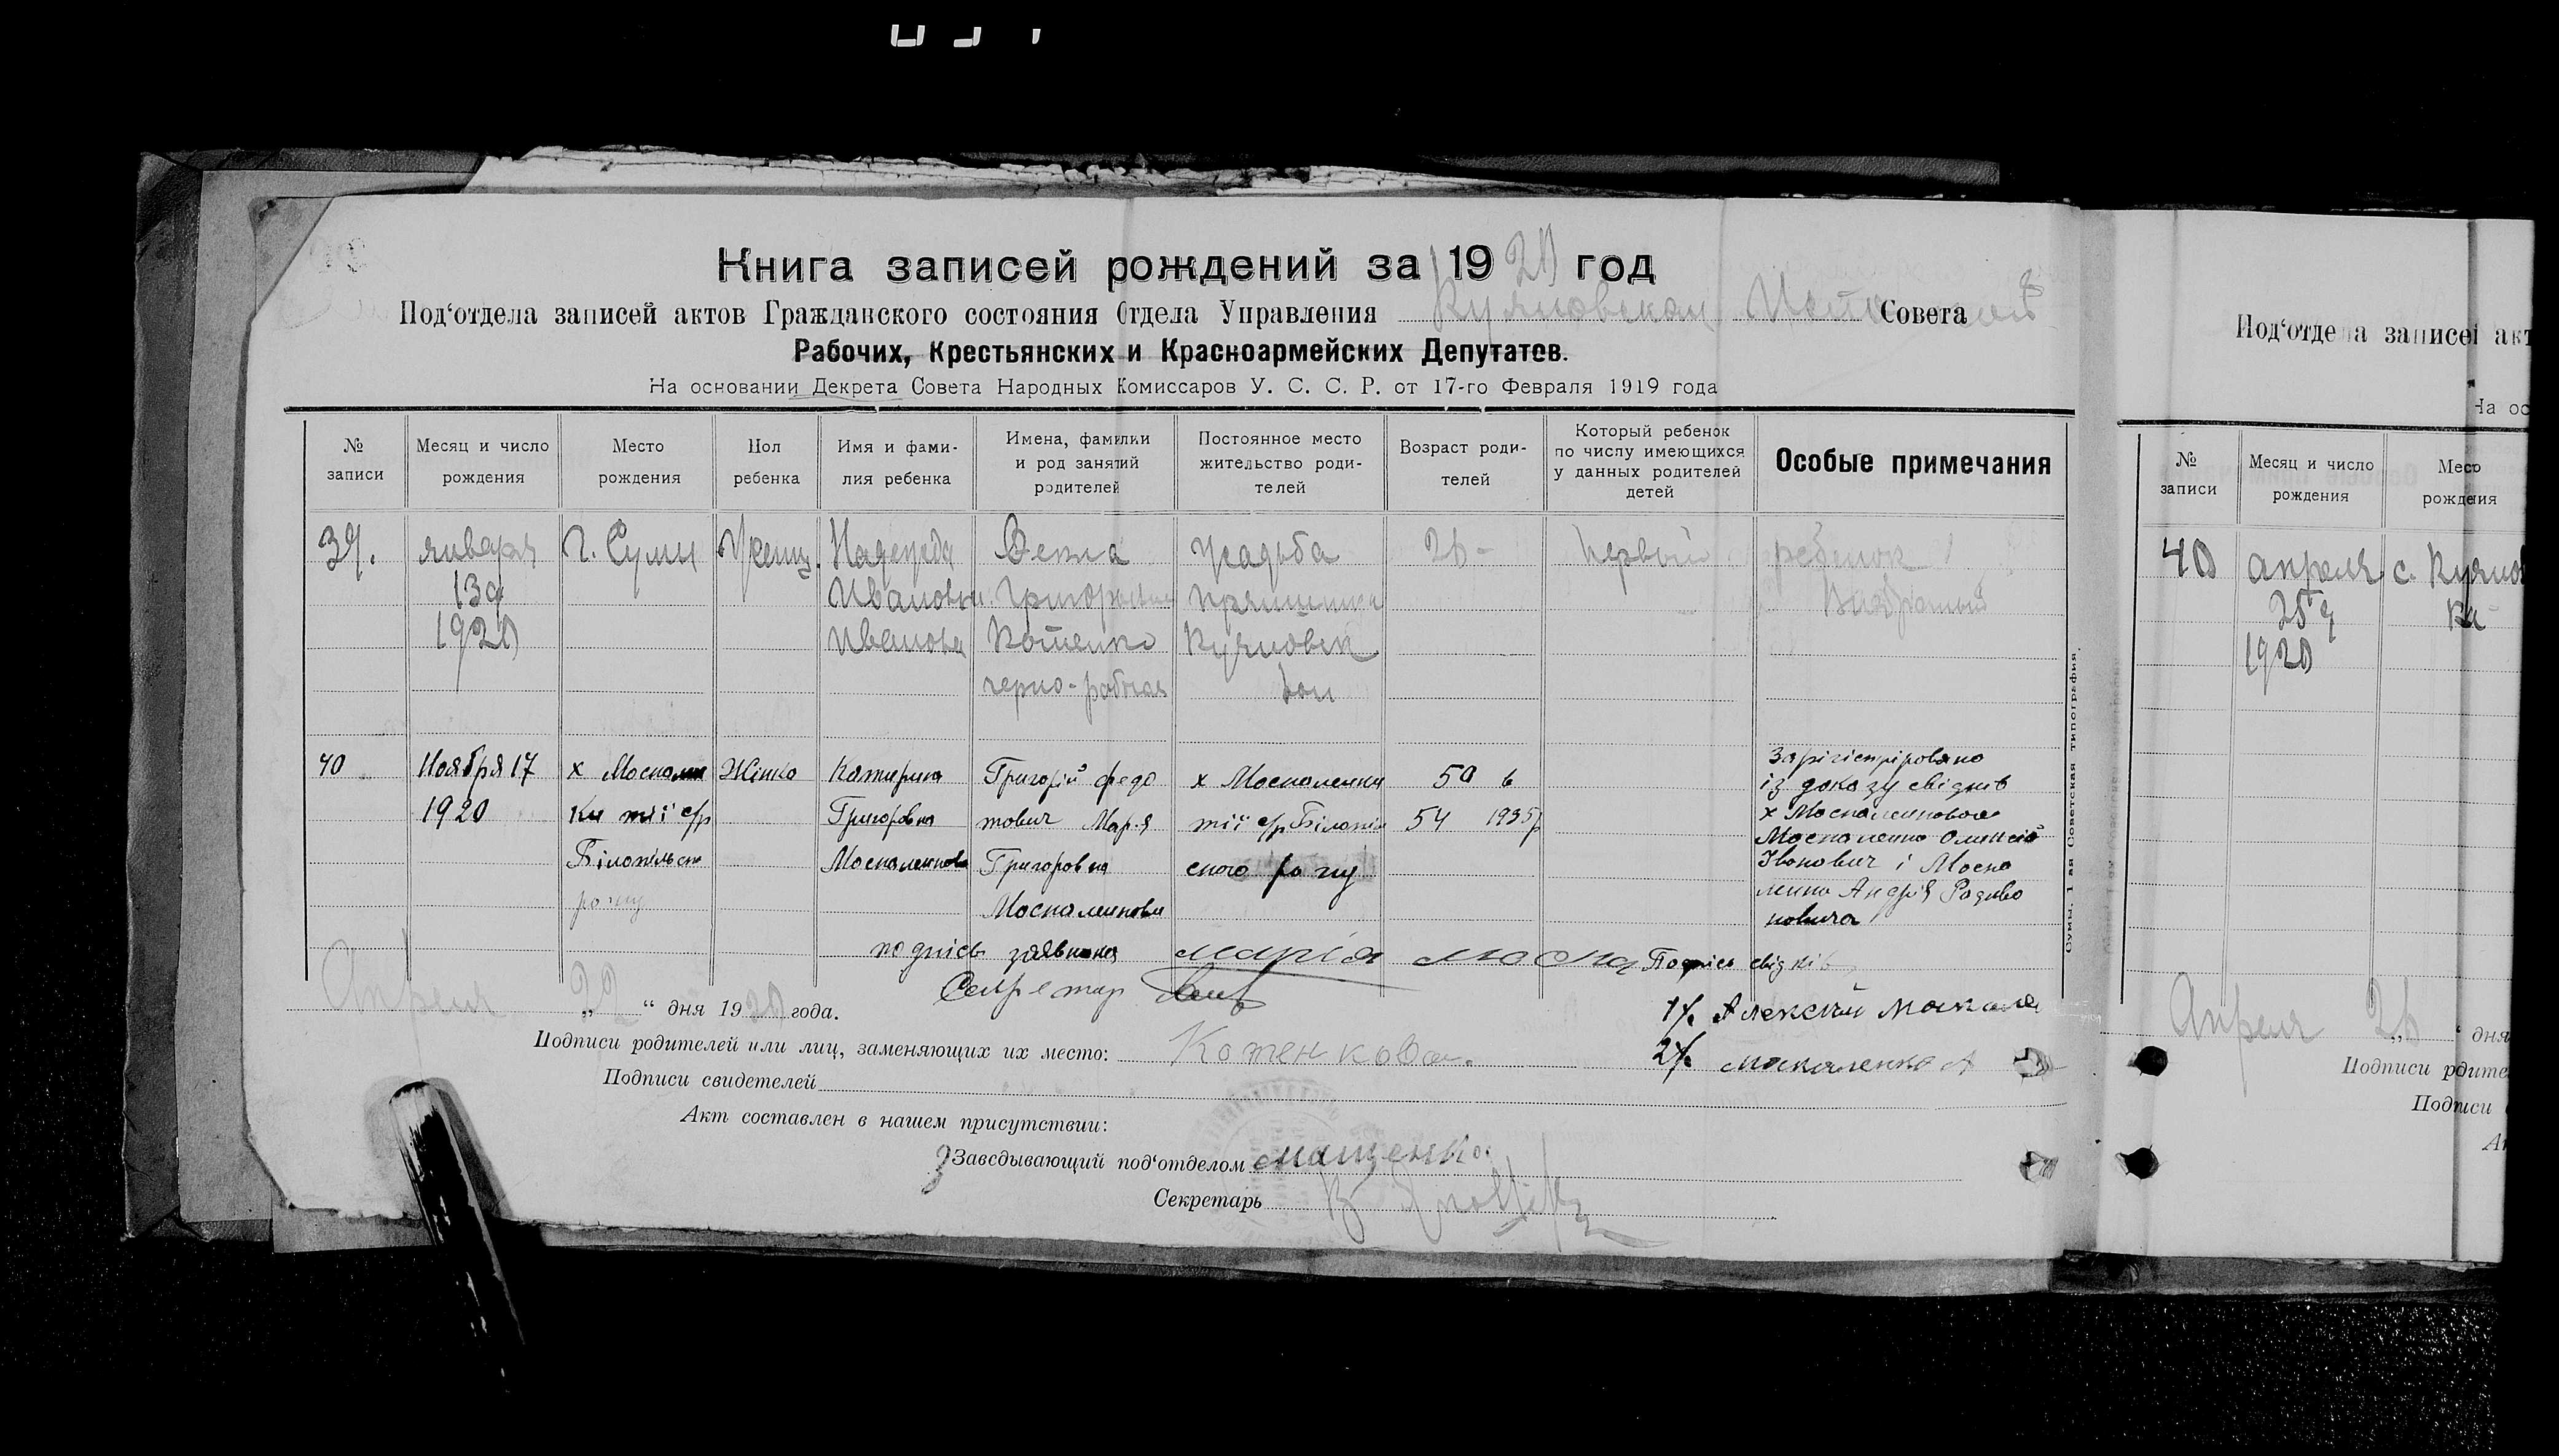 Книга записей рождений за 1920 год
Под‘отдела записей актов Гражданского состояния Отдела Управления Куяновской Совета
Рабочих, Крестьянских и Красноармейских Депутатов.
На основании Декрета Совета Народных Комиссаров У. С. С. Р. от 17-го Февраля 1919 года
№ записи
Месяц и число рождения
Место рождения
Пол ребенка
Имя и фами-
лия ребенка
Имена, фамилии
и род занятий
родителей
Постоянное место
жительство роди-
телей
Возраст роди-
телей
Который ребенок
по числу имеющихся
у данных родителей
детей
Особые примечания
39.
января
13
1920
г. Сумы
Женщ.
Надежда
Ивановна
Иванова
Григорьевна
Котенко
черно-рабочая
Усадьба
26
первый
ребенок
40
Ноября 17
1920
х Москален
ки тії с/р
Білопільско
рону
Жінка
Катерина
Григоровна
Москаленкова
Григорій Федо
тович Мария
Григоровна
Москаленкови
х Москаленки
тії с/р Білопіл
ского рону
50 в
54 1935р
Зарігістріровано
із доказу свідків
х Москаленкового
Москаленко Олексій
Іванович і Моска
ленко Андрія Родиво
новича
подпісь заявника Марія Моска
Подпісь свідків
Секретар
1/. Алексій Москале
2/. Москаленко А
Апреля „22“ дня 1920 года.
Подписи родителей или лиц, заменяющих их место: Котенкова.
Подписи свидетелей
Акт составлен в нашем присутствии:
Заведывающий под‘отделом
Секретарь
Сумы. 1 ая Советская типография.
Под‘отдела записей акт
На ос
№ записи
Месяц и число рождения
Место рождения
40
апреля
25
1920
с. Куянов
ка
Апреля „26“ дня
Подписи родите
Подписи